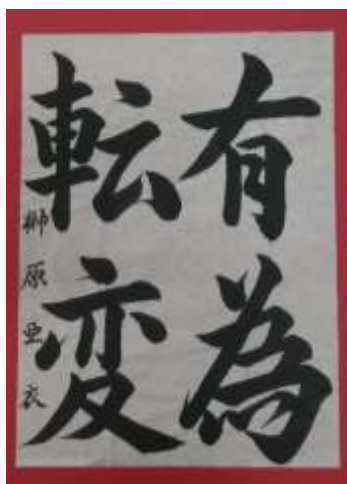 有為
転変
榊原亜衣